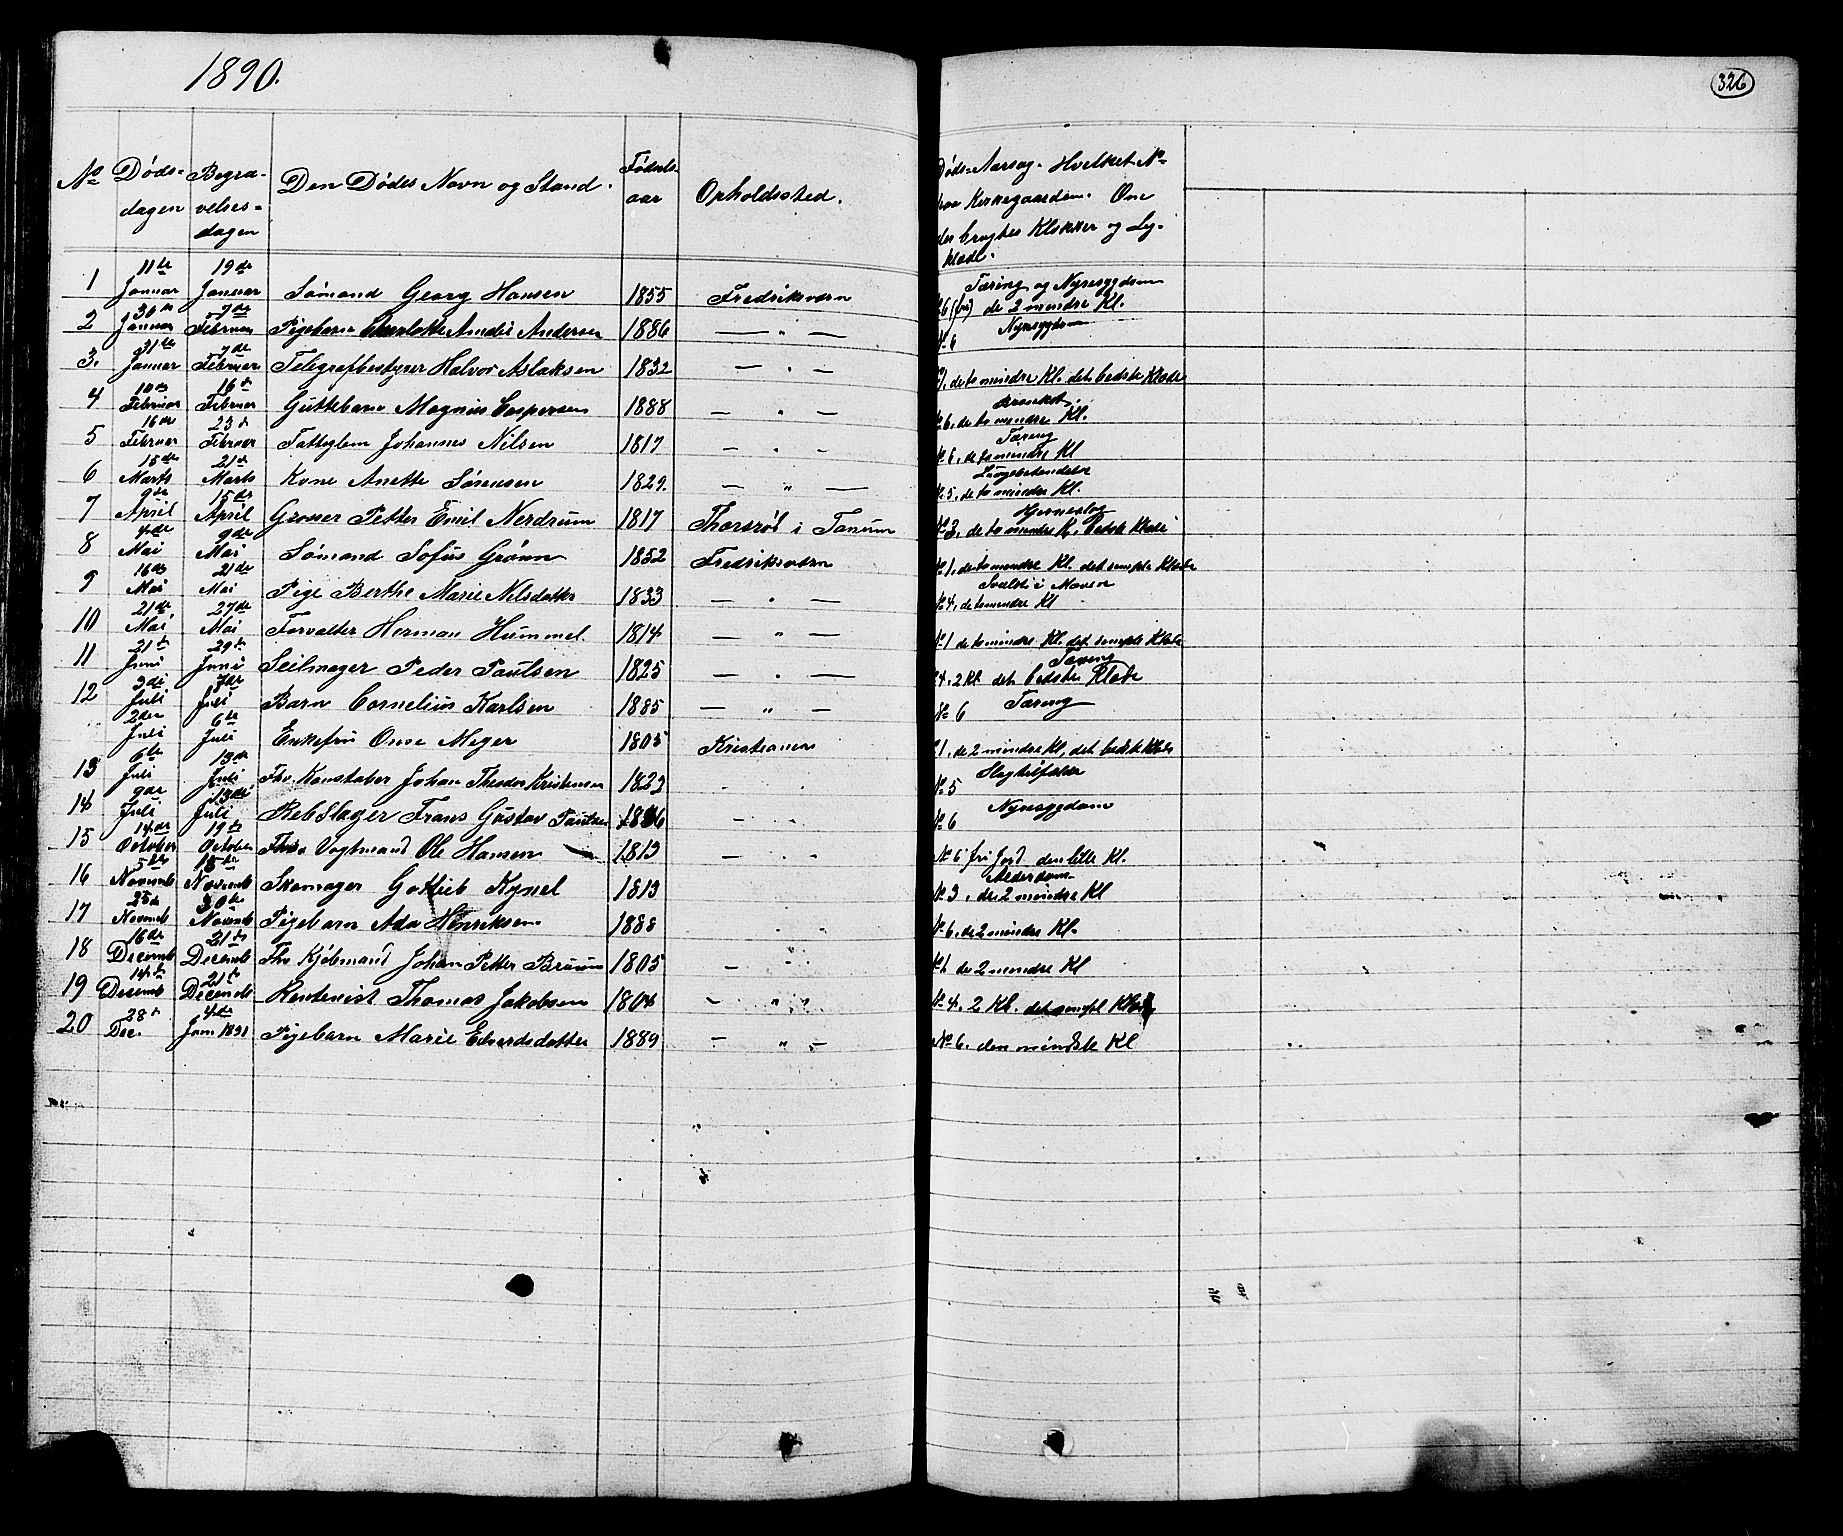 1890.
326
No Døds- dagen Begra- velses- dagen Den Dødes Navn og Stand. Fødsels- aar Opholdssted. Døds-Aarsag. Hvilket No paa Kirkegaarden. Om der brugtes Klokker og Lig- klæde.
1 11te Januar 19de Januar Sømand Georg Hansen 1855 Fredriksværn Tæring og Nyresygdom 6 (fri) de 2 mindre Kl.
2 30te Januar 7de Februar Pigebarn Amalie Andersen 1886 — " — Nyresygdom No 6
3. 31te Januar 7de Februar Telegrafbestyrer Halvor Aslaksen 1832 — " — 1. de to mindre Kl. det bedste Klæde
4 10de Februar 16de Februar Guttebarn Magnus Caspersen 1888 — " — No 6. de to mindre Kl.
5 16de Februar 23de Februar Fattiglem Johannes Nilsen 1817 — " — Tæring No 6. de to mindre Kl
6 15de Marts 21de Marts Kone Anette Sørensen 1829. — " — Lungebetendelse No 5. de to mindre Kl.
7 9de April 15de April Grosser Petter Emil Nerdrum 1817 Thorsrøl i Tanum Hjerneslag No 3. de to mindre Kl. bedste Klæde
8 4de Mai 9de Mai Sømand Sofus Grønn 1852 Fredriksværn No 1. de to mindre Kl. det simple Klæde
9 16de Mai 21de Mai Pige Berthe Marie Nilsdatter 1833 — " — Svulst i Maven No 4. de to mindre Kl
10 21de Mai 27de Mai Forvalter Herman Hummel. 1814 — " — No 1 de to mindre Kl. det simple Klæde
11 21de Juni 29de Juni Seilmager Peder Paulsen 1825 — " — Tæring 4. 2 Kl. det bedste Klæde
12 3die Juli 7de Juli Barn Cornelius Karlsen 1885 — " — No 6 Tæring
2den Juli 6te Juli Enkefru Meyer 1805 Kristiania 1. de 2 mindre Kl, det bedste Klæde
13 6te Juli 13de Juli Fhv. Konstabel Johan Theodor Kristensen 1823 Slagtilfælde No 5
14 9de Juli 13de Juli Rebslager Frans Gustav Paulsen 1836 — " Nyresygdom No 6
15 14de October 19de October Fhv. Vogtmand Ole Hansen 1813 — " " No 6 fri Jord den lille Kl.
16 5te Novemb 15de Novemb Skomager Gotlieb Kynel 1813 Alderdom No 3. de 2 mindre Kl
17 25de Novemb 30te Novemb Pigebarn Ada Henriksen 1888 " " No 6. de 2 mindre Kl.
18 16de Decemb 21de Decemb Fhv Kjøbmand Johan Petter Bruun 1805 — " " No 1 de 2 mindre Kl
19 14de Decemb 21de Decemb Rentenist Thomas Jakobsen 1804 — " " No 4. 2 Kl. det simpl Klæde
20 28de Dec. 4de Jan. 1891 Pigebarn Marie Edvardsdatter 1889 — " — No 6. den mindste Kl